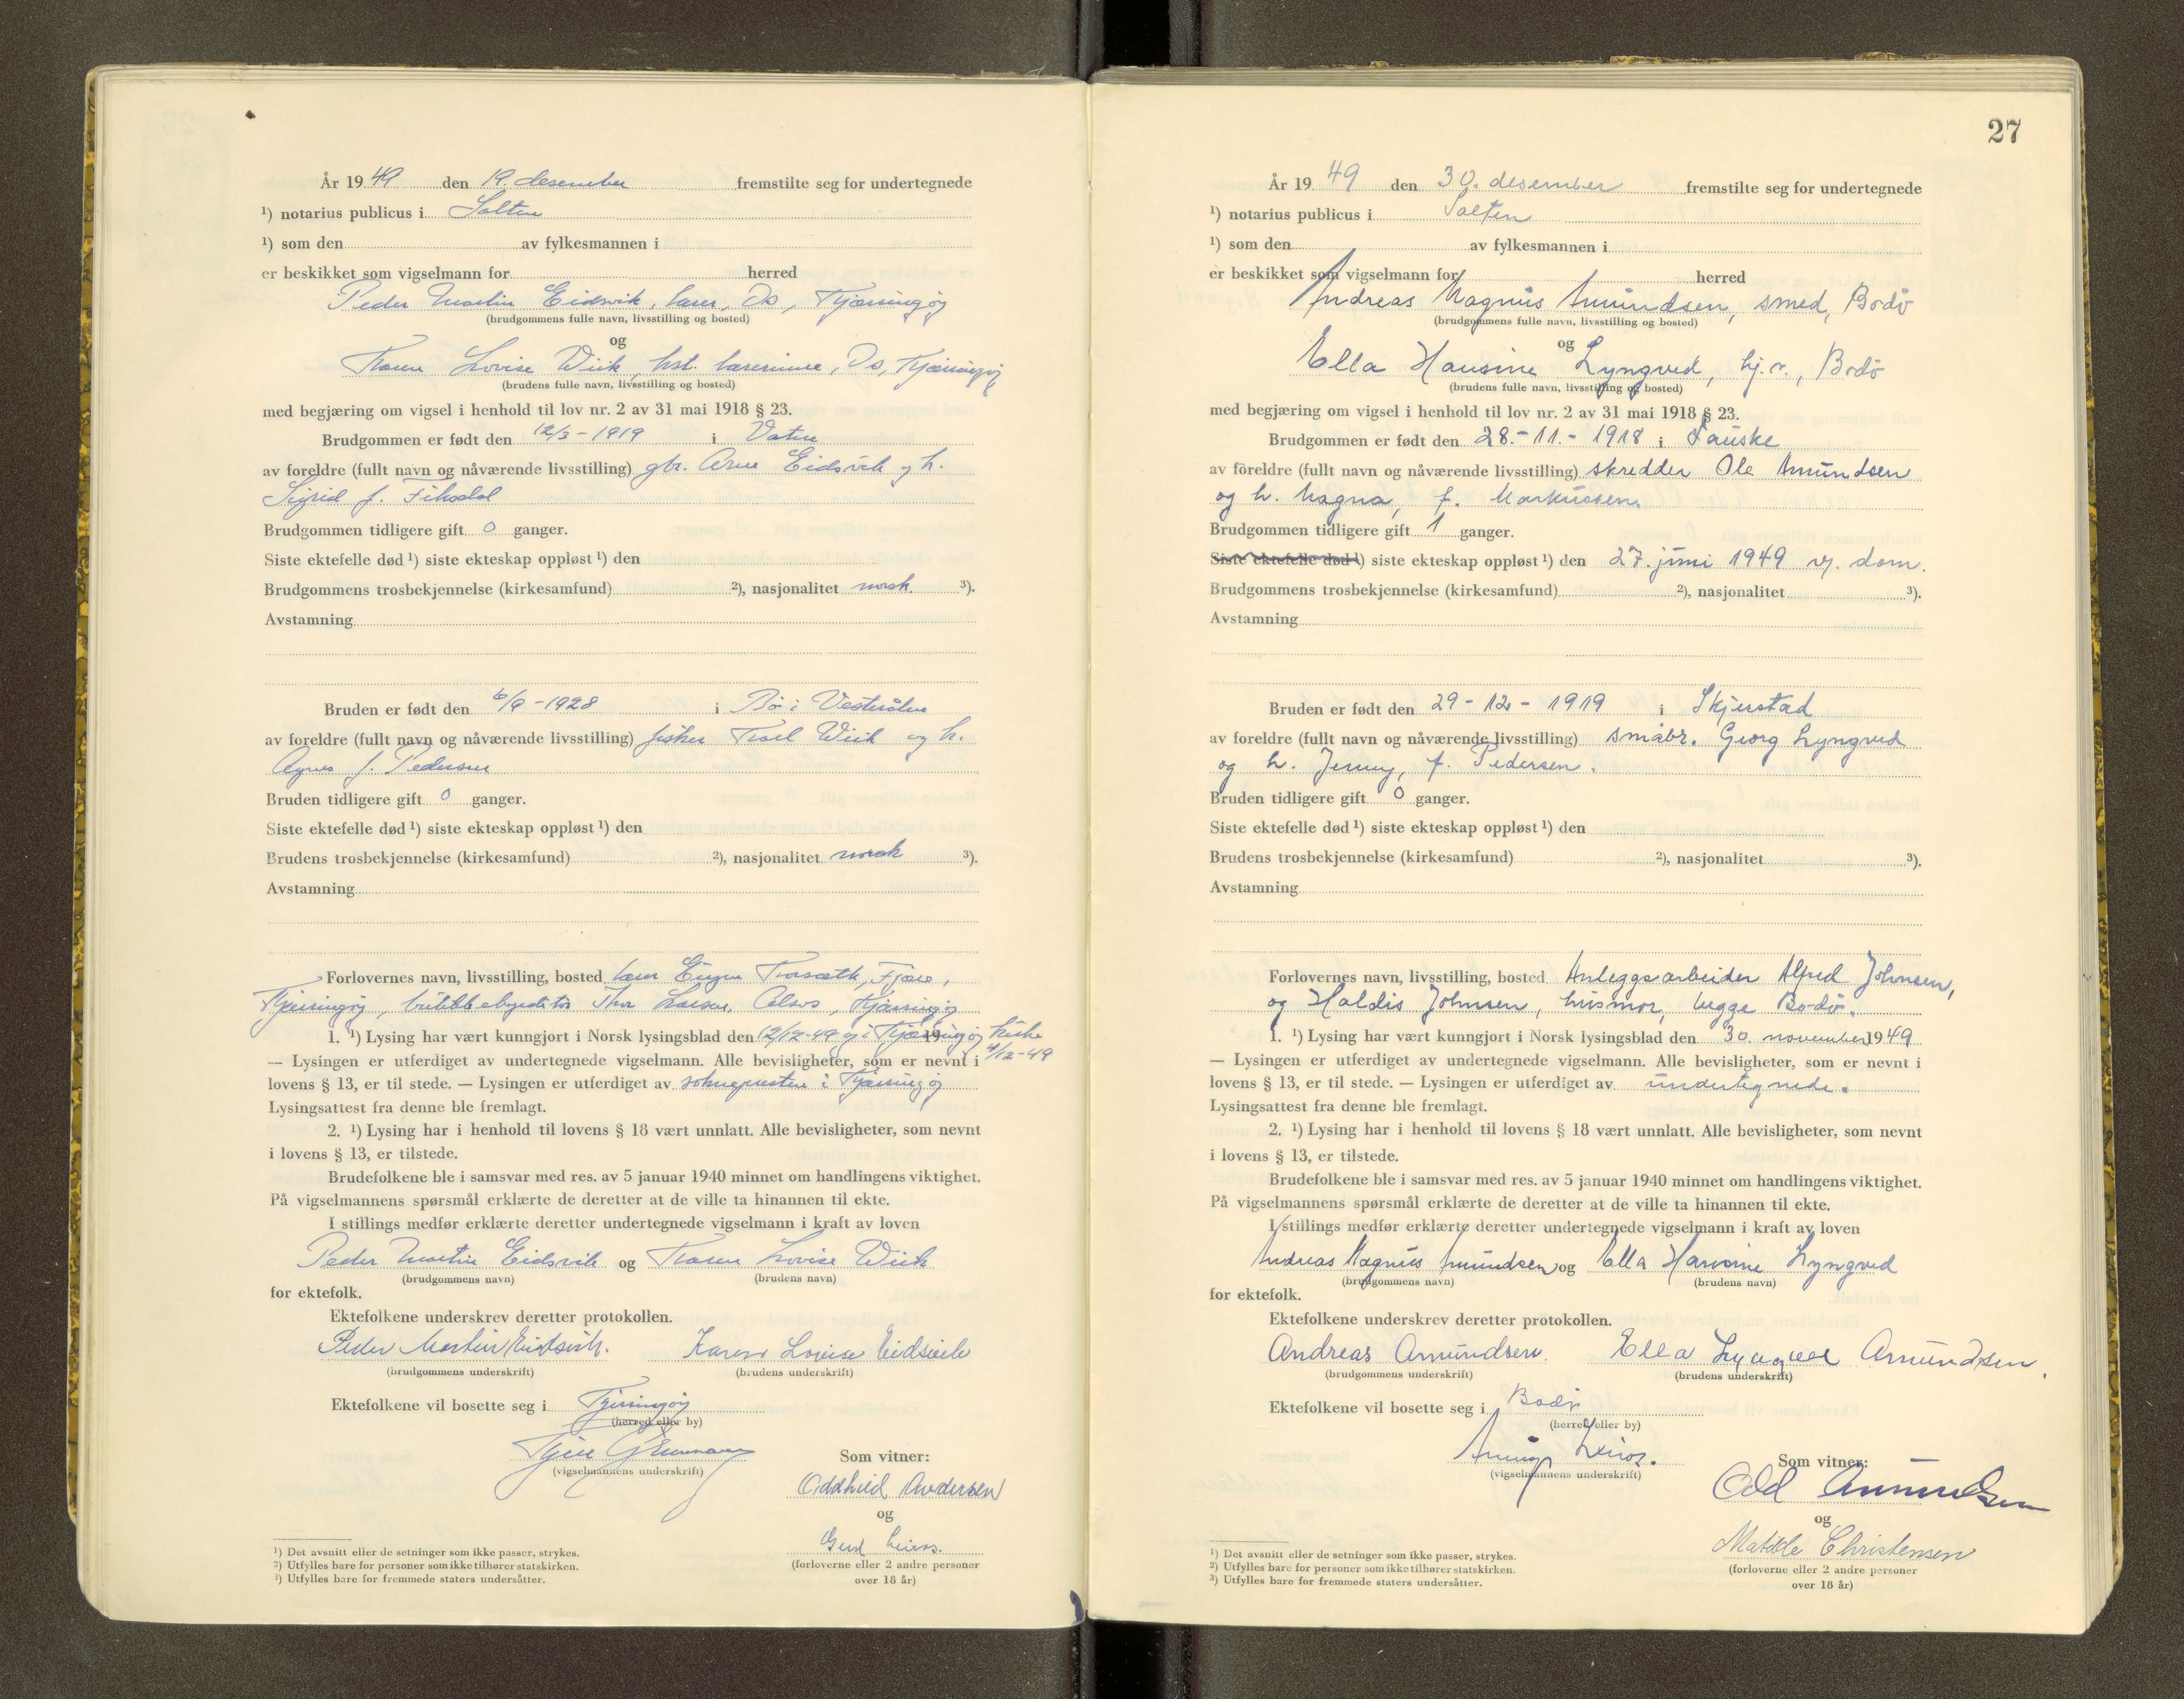 År 19 49 den 19. desember fremstilte seg for undertegnede
¹) notarius publicus i Salten
¹) som den av fylkesmannen i
er beskikket som vigselmann for herred
Peder Martin Eidsvik, lærer, Os, Kjerringøy
(brudgommens fulle navn, livsstilling og bosted)
og
Karen Lovise Wiik, hst. lærerinne, Os, Kjerringøy
(brudens fulle navn, livsstilling og bosted)
med begjæring om vigsel i henhold til lov nr. 2 av 31 mai 1918 § 23.
Brudgommen er født den 12/3 - 1919 i Vatne
av foreldre (fullt navn og nåværende livsstilling) gbr. Arne Eidsvik og h.
Sigrid f. Fiksdal
Brudgommen tidligere gift 0 ganger.
Siste ektefelle død ¹) siste ekteskap oppløst ¹) den
Brudgommens trosbekjennelse (kirkesamfund) ²), nasjonalitet norsk. ³).
Avstamning
Bruden er født den 6/9 - 1928 i Bø i Vesterålen
av foreldre (fullt navn og nåværende livsstilling) fisker Karl Wiik og h.
Agnes f. Pedersen
Bruden tidligere gift 0 ganger.
Siste ektefelle død ¹) siste ekteskap oppløst ¹) den
Brudens trosbekjennelse (kirkesamfund) ²), nasjonalitet norsk ³).
Avstamning
Forlovernes navn, livsstilling, bosted lærer Fjære,
Kjerringøy, Thor Larsen, Kjerringøy
1. ¹) Lysing har vært kunngjort i Norsk lysingsblad den 12/12-49 og i Kjerringøy kirke 19
4/12-49
— Lysingen er utferdiget av undertegnede vigselmann. Alle bevisligheter, som er nevnt i
lovens § 13, er til stede. — Lysingen er utferdiget av soknepresten i Kjerringøy
Lysingsattest fra denne ble fremlagt.
2. ¹) Lysing har i henhold til lovens § 18 vært unnlatt. Alle bevisligheter, som nevnt
i lovens § 13, er tilstede.
Brudefolkene ble i samsvar med res. av 5 januar 1940 minnet om handlingens viktighet.
På vigselmannens spørsmål erklærte de deretter at de ville ta hinannen til ekte.
I stillings medfør erklærte deretter undertegnede vigselmann i kraft av loven
Peder Martin Eidsvik og Karen Lovise Wiik
(brudgommens navn) (brudens navn)
for ektefolk.
Ektefolkene underskrev deretter protokollen.
Peder Martin Eidsvik. Karen Lovise Eidsvik
(brudgommens underskrift) (brudens underskrift)
Ektefolkene vil bosette seg i Kjerringøy
(herred eller by)
(vigselmannens underskrift)
Som vitner:
Oddhild Andersen
og
Gerd Leiros.
(forloverne eller 2 andre personer
over 18 år)
¹) Det avsnitt eller de setninger som ikke passer, strykes.
²) Utfylles bare for personer som ikke tilhører statskirken.
³) Utfylles bare for fremmede staters undersåtter.
27
År 19 49 den 30. desember fremstilte seg for undertegnede
¹) notarius publicus i Salten
¹) som den av fylkesmannen i
er beskikket som vigselmann for herred
Andreas Magnus Amundsen, smed, Bodø
(brudgommens fulle navn, livsstilling og bosted)
og
Ella Hansine Lyngved, hj.v., Bodø
(brudens fulle navn, livsstilling og bosted)
med begjæring om vigsel i henhold til lov nr. 2 av 31 mai 1918 § 23.
Brudgommen er født den 28.-11.- 1918 i Fauske
av foreldre (fullt navn og nåværende livsstilling) skredder Ole Amundsen
og h. Magna, f. Markussen.
Brudgommen tidligere gift 1 ganger.
Siste ektefelle død ¹) siste ekteskap oppløst ¹) den 27. juni 1949 v. dom.
Brudgommens trosbekjennelse (kirkesamfund) ²), nasjonalitet ³).
Avstamning
Bruden er født den 29 - 12 - 1919 i Skjerstad
av foreldre (fullt navn og nåværende livsstilling) småbr. Georg Lyngved
og h. Jenny, f. Pedersen.
Bruden tidligere gift 0 ganger.
Siste ektefelle død ¹) siste ekteskap oppløst ¹) den
Brudens trosbekjennelse (kirkesamfund) ²), nasjonalitet ³).
Avstamning
Forlovernes navn, livsstilling, bosted Anleggsarbeider Alfred Johnsen,
og Haldis Johnsen, husmor, begge Bodø.
1. ¹) Lysing har vært kunngjort i Norsk lysingsblad den 30. november 19 49
— Lysingen er utferdiget av undertegnede vigselmann. Alle bevisligheter, som er nevnt i
lovens § 13, er til stede. — Lysingen er utferdiget av undertegnede.
Lysingsattest fra denne ble fremlagt.
2. ¹) Lysing har i henhold til lovens § 18 vært unnlatt. Alle bevisligheter, som nevnt
i lovens § 13, er tilstede.
Brudefolkene ble i samsvar med res. av 5 januar 1940 minnet om handlingens viktighet.
På vigselmannens spørsmål erklærte de deretter at de ville ta hinannen til ekte.
I stillings medfør erklærte deretter undertegnede vigselmann i kraft av loven
Andreas Magnus Amundsen og Ella Hansine Lyngved
(brudgommens navn) (brudens navn)
for ektefolk.
Ektefolkene underskrev deretter protokollen.
Andreas Amundsen. Ella Lyngved Amundsen.
(brudgommens underskrift) (brudens underskrift)
Ektefolkene vil bosette seg i Bodø
(herred eller by)
Leiros.
(vigselmannens underskrift)
Som vitner:
Odd Amundsen
og
Matilde Christensen
(forloverne eller 2 andre personer
over 18 år)
¹) Det avsnitt eller de setninger som ikke passer, strykes.
²) Utfylles bare for personer som ikke tilhører statskirken.
³) Utfylles bare for fremmede staters undersåtter.